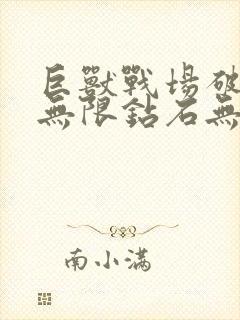 巨獸戰場破
無限鈷石無
南小滿